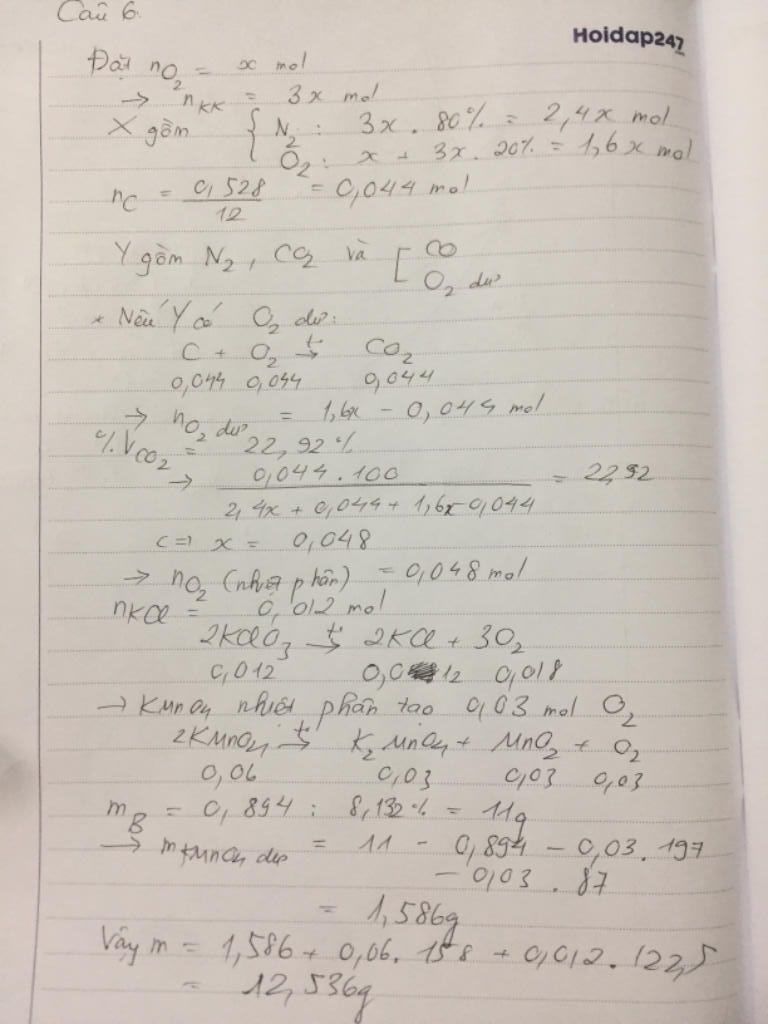 Câu 6.
Hoidap247
Đặt nO2 = x mol
→ nKK = 3x mol
X gồm { N2 : 3x . 80% = 2,4x mol
O2 : x + 3x . 20% = 1,6x mol
nC = 0,528 / 12 = 0,044 mol
Y gồm N2 , CO2 và [ CO
O2 dư
* Nếu Y có O2 dư:
C + O2 t°→ CO2
0,044 0,044 0,044
→ nO2 dư = 1,6x - 0,044 mol
% VCO2 = 22,92 %
→ 0,044 . 100 / 2,4x + 0,044 + 1,6x - 0,044 = 22,92
<=> x = 0,048
→ nO2 (nhiệt phân) = 0,048 mol
nKCl = 0,012 mol
2KClO3 t°→ 2KCl + 3O2
0,012 0,012 0,018
→ KMnO4 nhiệt phân tạo 0,03 mol O2
2KMnO4 t°→ K2MnO4 + MnO2 + O2
0,06 0,03 0,03 0,03
mB = 0,894 : 8,132% = 11g
→ mKMnO4 dư = 11 - 0,894 - 0,03 . 197
- 0,03 . 87
= 1,586g
Vậy m = 1,586 + 0,06 . 158 + 0,012 . 122,5
= 12,536g